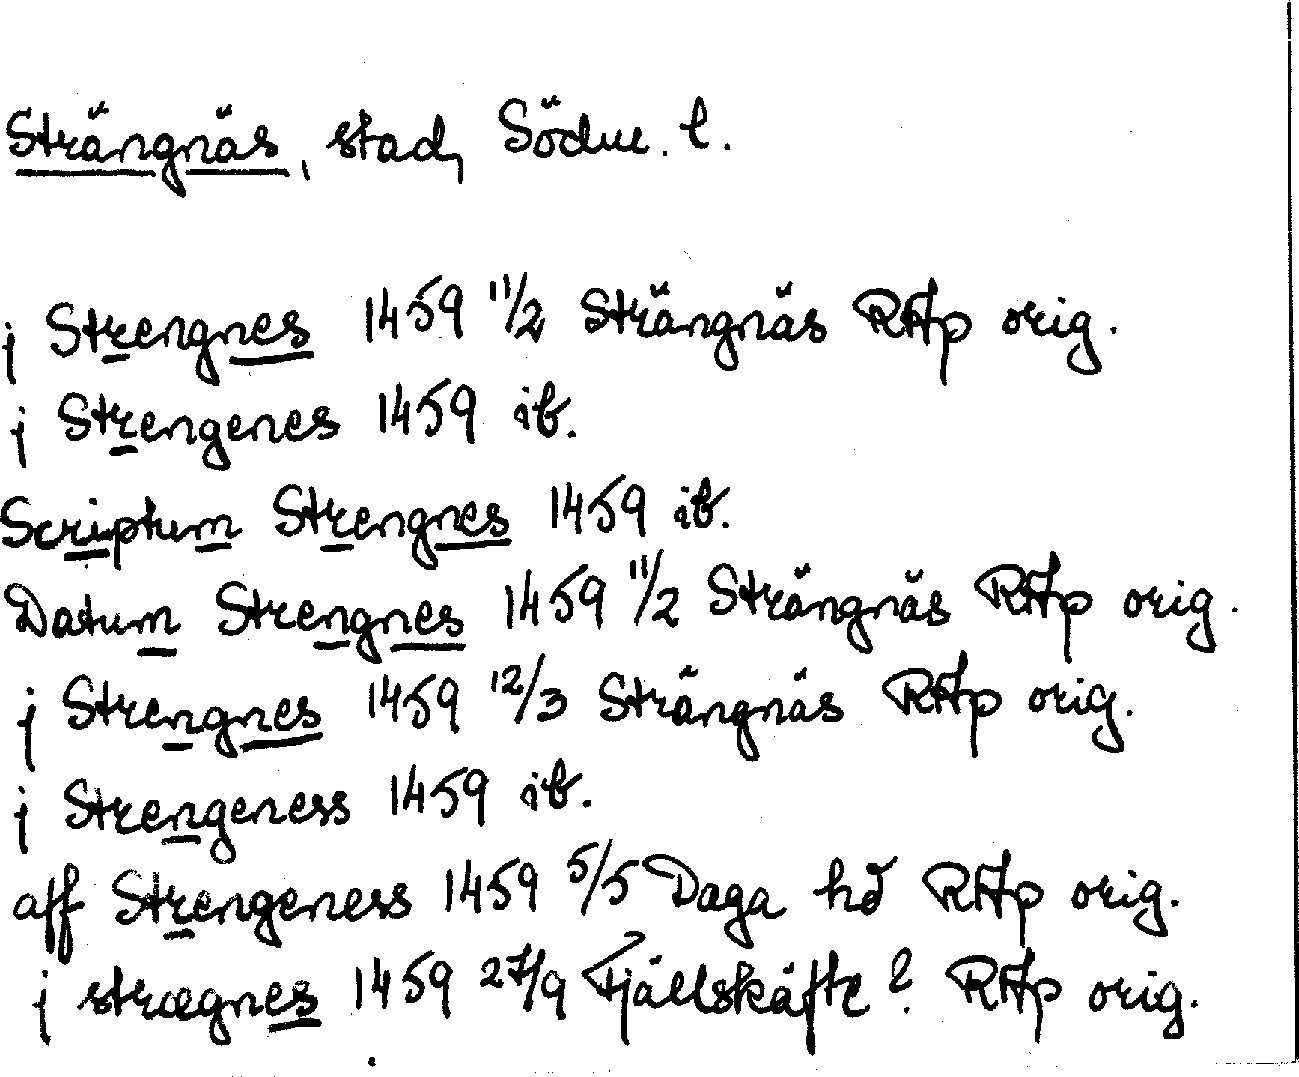 Strängnäs, stad, Söderm. l.
j Strengnes 1459 11/2 Strängnäs RAp orig.
j Strengenes 1459 ib.
Scriptum Strengnes 1459 ib.
Datum Strengnes 1459 11/2 Strängnäs RAp orig.
j Strengnes 1459 12/3 Strängnäs RAp orig.
j Strengeness 1459 ib.
aff Strengeness 1459 5/5 Daga hd RAp orig.
j strægnes 1459 27/9 Fjällskäfte ? RAp orig.